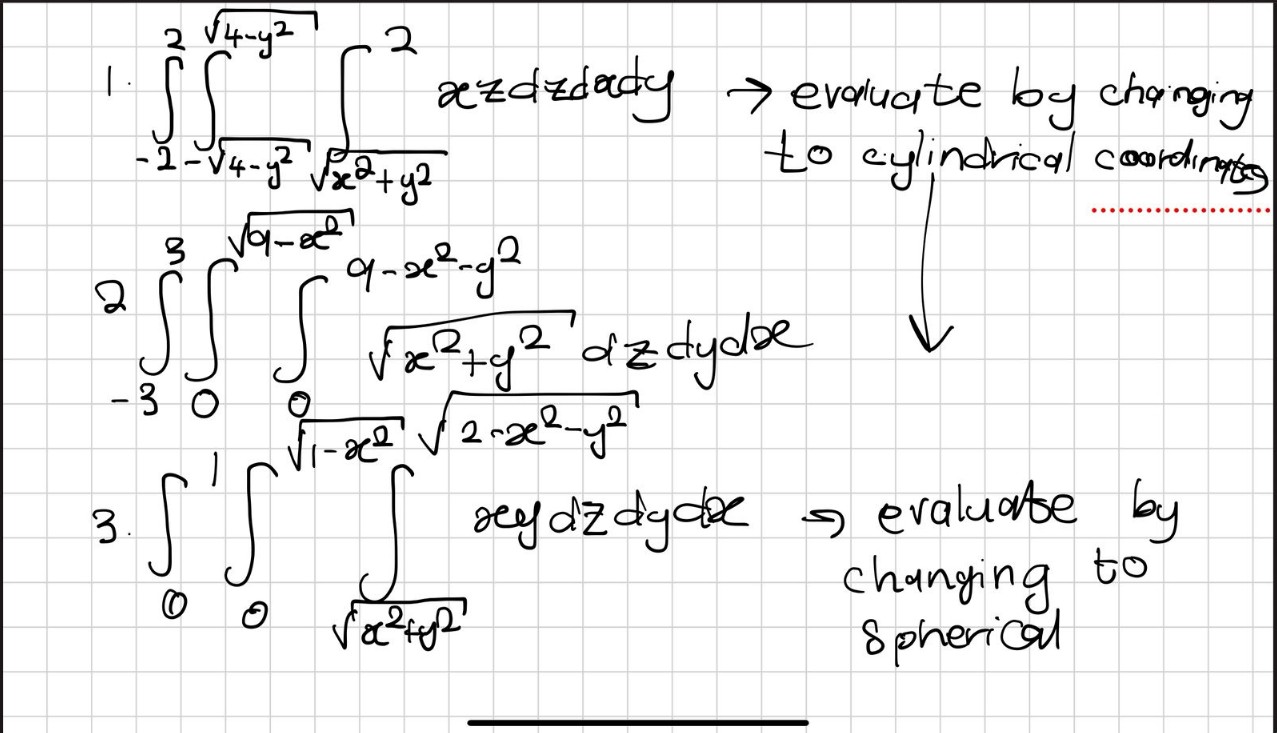 1. ∫_{-2}^{2} ∫_{-√(4-y²)}^{√(4-y²)} ∫_{√(x²+y²)}^{2} xz dz dx dy → evaluate by changing
to cylindrical coordinates
2 ∫_{-3}^{3} ∫_{0}^{√(9-x²)} ∫_{0}^{9-x²-y²} √(x²+y²) dz dy dx
3. ∫_{0}^{1} ∫_{0}^{√(1-x²)} ∫_{√(x²+y²)}^{√(2-x²-y²)} xy dz dy dx → evaluate by
changing to
spherical